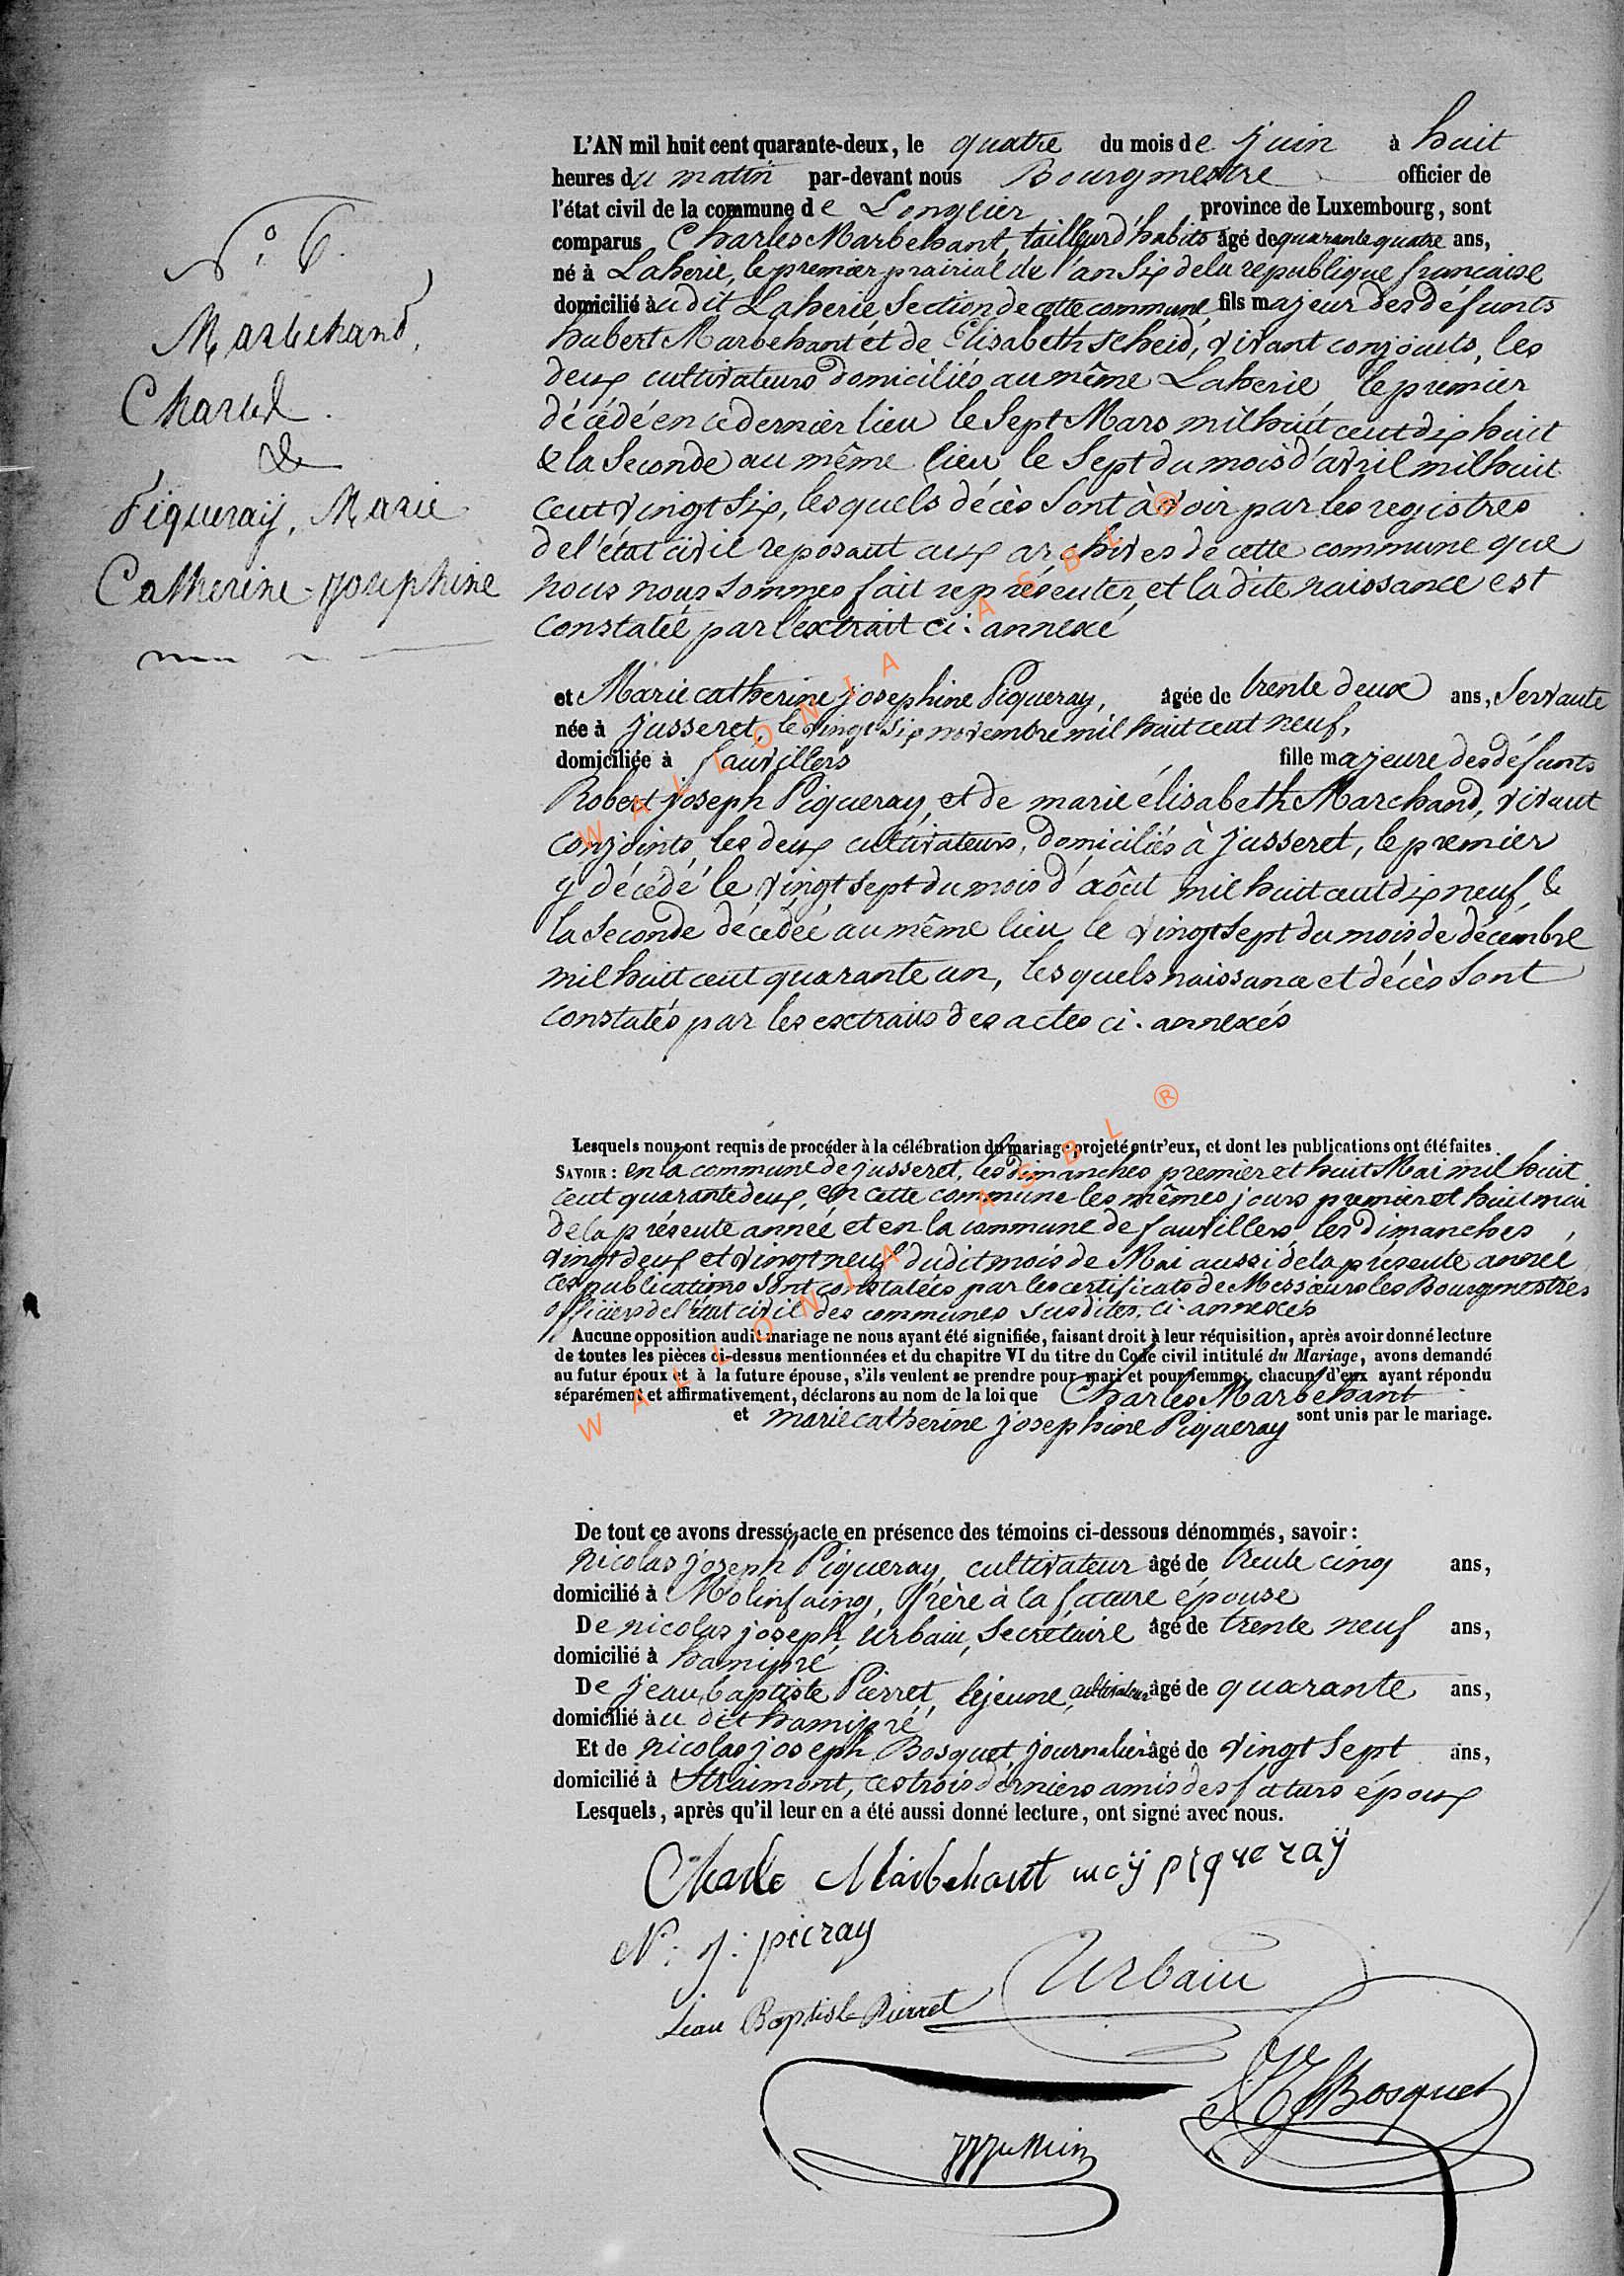 N° 6.
Marbehand,
Charles
&
Piqueraÿ, Marie
Catherine Josephine
L'AN mil huit cent quarante-deux, le quatre du mois de juin à huit
heures du matin par-devant nous Bourgmestre officier de
l'état civil de la commune de Longlier province de Luxembourg, sont
comparus Charles Marbehant, tailleur d'habits âgé de quarante quatre ans,
né à Laherie, le premier prairial de l'an Six de la republique française
domicilié audit Laherie, Section de cette commune, fils majeur des défunts
hubert Marbehant et de Elisabeth Scheid, vivant conjoints, les
deux cultivateurs domiciliés au même Laherie, le premier
décédé en ce dernier lieu le Sept Mars mil huit cent dix huit
& la Seconde au même lieu le Sept du mois d'avril mil huit
cent vingt Six, lesquels décès Sont à voir par les registres
de l'état civil reposant aux archives de cette commune que
nous nous sommes fait representer, et la dite naissance est
Constatée par l'extrait ci-annexé
et Marie catherine josephine Piqueray, âgée de trente deux ans, Servante
née à jusseret, le vingt Six novembre mil huit cent neuf,
domiciliée à fauvillers fille majeure des défunts
Robert joseph Piqueray, et de marie élisabeth Marchand, vivant
conjoints, les deux cultivateurs, domiciliés à jusseret, le premier
y décédé le vingt sept du mois d'août mil huit cent dix neuf, &
la Seconde décédée au même lieu le vingt sept du mois de décembre
mil huit cent quarante un, lesquels naissance et décès Sont
constatés par les extraits des actes ci-annexés
Lesquels nous ont requis de procéder à la célébration du mariage projeté entr'eux, et dont les publications ont été faites
SAVOIR : en la commune de jusseret, les dimanches premier et huit Mai mil huit
cent quarante deux, en cette commune les mêmes jours premier et huit mai
de la présente année et en la commune de fauvillers, les dimanches
vingt deux et vingt neuf dudit mois de Mai aussi de la présente année
ces publications sont constatées par les certificats de Messieurs les Bourgmestres
officiers de l'état civil des communes susdites, ci-annexés
Aucune opposition audit mariage ne nous ayant été signifiée, faisant droit à leur réquisition, après avoir donné lecture
de toutes les pièces ci-dessus mentionnées et du chapitre VI du titre du Code civil intitulé du Mariage, avons demandé
au futur époux et à la future épouse, s'ils veulent se prendre pour mari et pour femme; chacun d'eux ayant répondu
séparément et affirmativement, déclarons au nom de la loi que Charles Marbehant
et marie catherine josephine Piqueray sont unis par le mariage.
De tout ce avons dressé acte en présence des témoins ci-dessous dénommés, savoir :
nicolas joseph Piqueray, cultivateur âgé de trente cinq ans,
domicilié à Molinfaing, frère à la future épouse
De nicolas joseph Urbain, Secrétaire âgé de trente neuf ans,
domicilié à hamipré
De jean baptiste Pierret, lejeune, cultivateur âgé de quarante ans,
domicilié au dit hamipré
Et de nicolas joseph Bosquet, journalier âgé de vingt Sept ans,
domicilié à Straimont, ces trois derniers amis des futurs époux
Lesquels, après qu'il leur en a été aussi donné lecture, ont signé avec nous.
Charle Marbehant mcÿ piqueraÿ
N: j: picray
Urbain
Jean Baptiste Pierret
NJBosquet
WALLONIA ASBL ®
WALLONIA ASBL ®